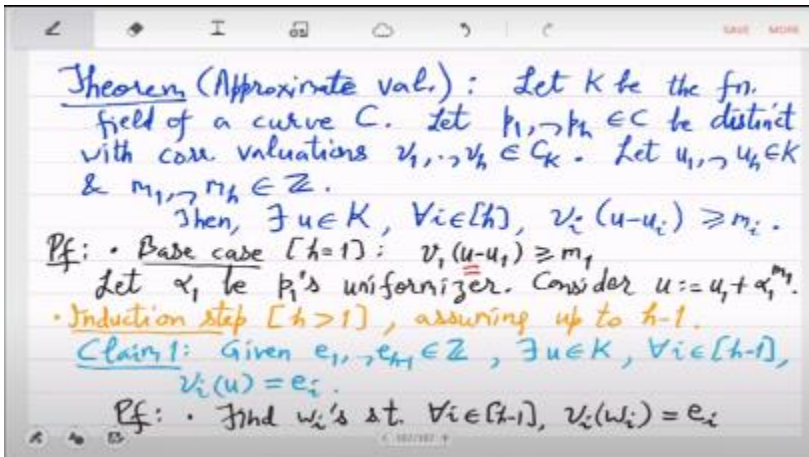 SAVE MORE
Theorem (Approximate val.) : Let K be the fn.
field of a curve C. Let p₁,¬pₕ ∈ C be distinct
with corr. valuations v₁,.,vₕ ∈ C_K. Let u₁,¬uₕ∈K
& m₁,¬mₕ ∈ ℤ.
Then, ∃u∈K, ∀i∈[h], vᵢ(u-uᵢ) ≥ mᵢ.
Pf: · Base case [h=1]: v₁(u-u₁) ≥ m₁
Let α₁ be p₁'s uniformizer. Consider u := u₁ + α₁^m₁.
· Induction step [h>1], assuming up to h-1.
Claim 1: Given e₁,¬eₕ₋₁ ∈ ℤ, ∃u∈K, ∀i∈[h-1],
vᵢ(u) = eᵢ.
Pf: · Find wᵢ's s.t. ∀i∈[h-1], vᵢ(wᵢ) = eᵢ